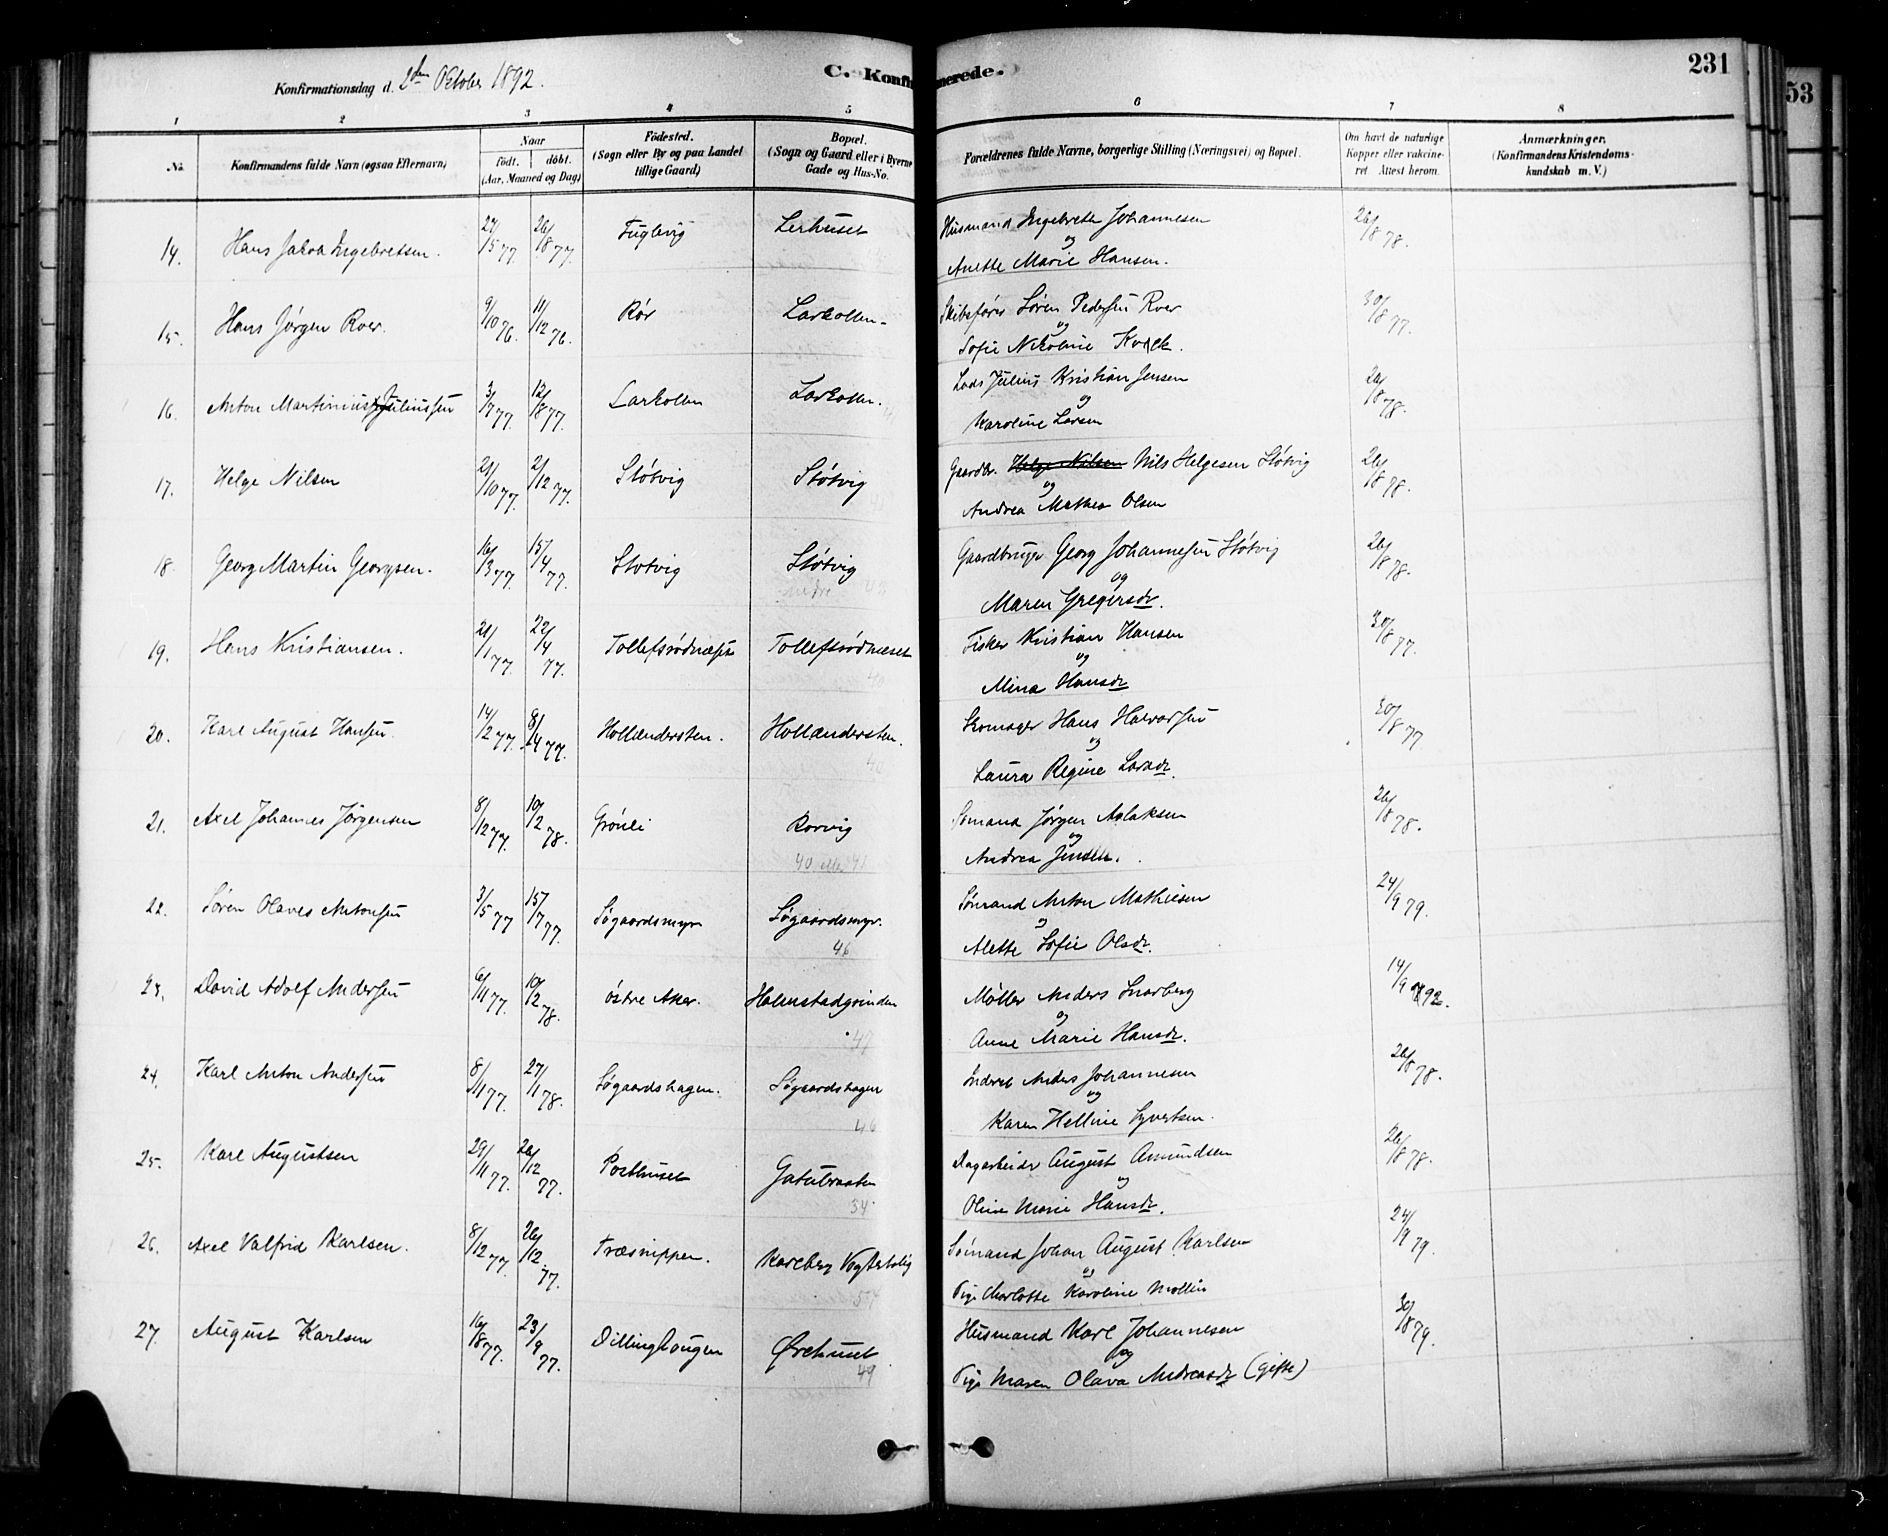 Konfirmationsdag d. 2den October 1892.
C. Konfirmerede.
231
53
1 2 3 4 5 6 7 8
No. Konfirmandens fulde Navn (ogsaa Efternavn) Naar født. døbt. (Aar, Maaned og Dag) Fødested. (Sogn eller By og paa Landet tillige Gaard) Bopæl. (Sogn og Gaard eller i Byerne Gade og Hus-No. Forældrenes fulde Navne, borgerlige Stilling (Næringsvei) og Bopæl. Om havt de naturlige Kopper eller vakcineret. Attest herom. Anmærkninger. (Konfirmandens Kristendomskundskab m. V.)
14. Hans Jakob Ingebretsen. 27/5 77. 26/8 77. Fuglevig Lerhuset Husmand Ingebreth Johannesen og 26/8 78.
Anette Marie Hansen.
15. Hans Jørgen Roer. 9/10 76. 11/12 76. Rør Larkollen Skibsfører Søren Pedersen Roer og 30/8 77.
Sofie Nikoline
16. Anton Martinius Juliussen 3/7 77. 12/8 77. Larkollen Larkollen. Lods Julius Kristian Jensen og 26/8 78.
Karoline Larsen
17. Helge Nilsen 29/10 77. 2/12 77. Støtvig Støtvig Gaardbr. Helge Nilsen Nils Helgesen Støtvig og 26/8 78.
Andrea Mathea Olsen
18. Georg Martin Georgsen. 16/3 77. 15/4 77. Støtvig Støtvig Gaardbruger Georg Johannesen Støtvig og 26/8 78.
nedre 42
Maren Gregersdr.
19. Hans Kristiansen. 21/1 77. 22/4 77. Tollefsrødnæset Tollefsrødnæset Fisker Kristian Hansen og 30/8 77.
40
Mina Hansdr
20. Karl August Hansen. 14/2 77. 8/4 77. Hollændersten. Hollændersten. Skomager Hans Halvorsen og 30/8 77
Laura Regine Larsdr.
21. Axel Johannes Jørgensen 8/12 77. 10/2 78. Grønli Rorvig Sømand Jørgen Aslaksen og 26/8 78.
40 eller 41
Andrea Jensen.
22. Søren Olaves Antonsen 3/5 77 15/7 77. Søgaardsmyr Søgaardsmyr. Sømand Anton Mathiesen og 24/9 79.
46
Alette Sofie Olsdr.
23. David Adolf Andersen 6/11 77. 10/2 78. Østre Aker. Halmstadgrinden Møller Anders Snarberg og 14/9 92.
47
Anne Marie Hansdr.
24. Karl Anton Andersen 8/11 77. 27/1 78. Søgaardshagen. Søgaardshagen Inderst Anders Johannesen og 26/8 78.
46
Karen Helline Syvertsen.
25. Karl Augustsen 29/11 77. 26/12 77. Posthuset Gatubraaten Dagarbeider August Amundsen og 26/8 78.
34
Oline Marie Hansdr.
26. Axel Valfrid Karlsen. 8/12 77. 26/12 77. Træsnippen. Karlberg Vogterbolig Sømand Johan August Karlsen og 24/9 79.
Pige Charlotte Karoline Mollin
27. August Karlsen 16/8 77. 23/9 77. Dillinghougen Ørehuset Husmand Karl Johannesen og 30/8 79.
49
Pige Maren Olava Andreasdr (gifte)